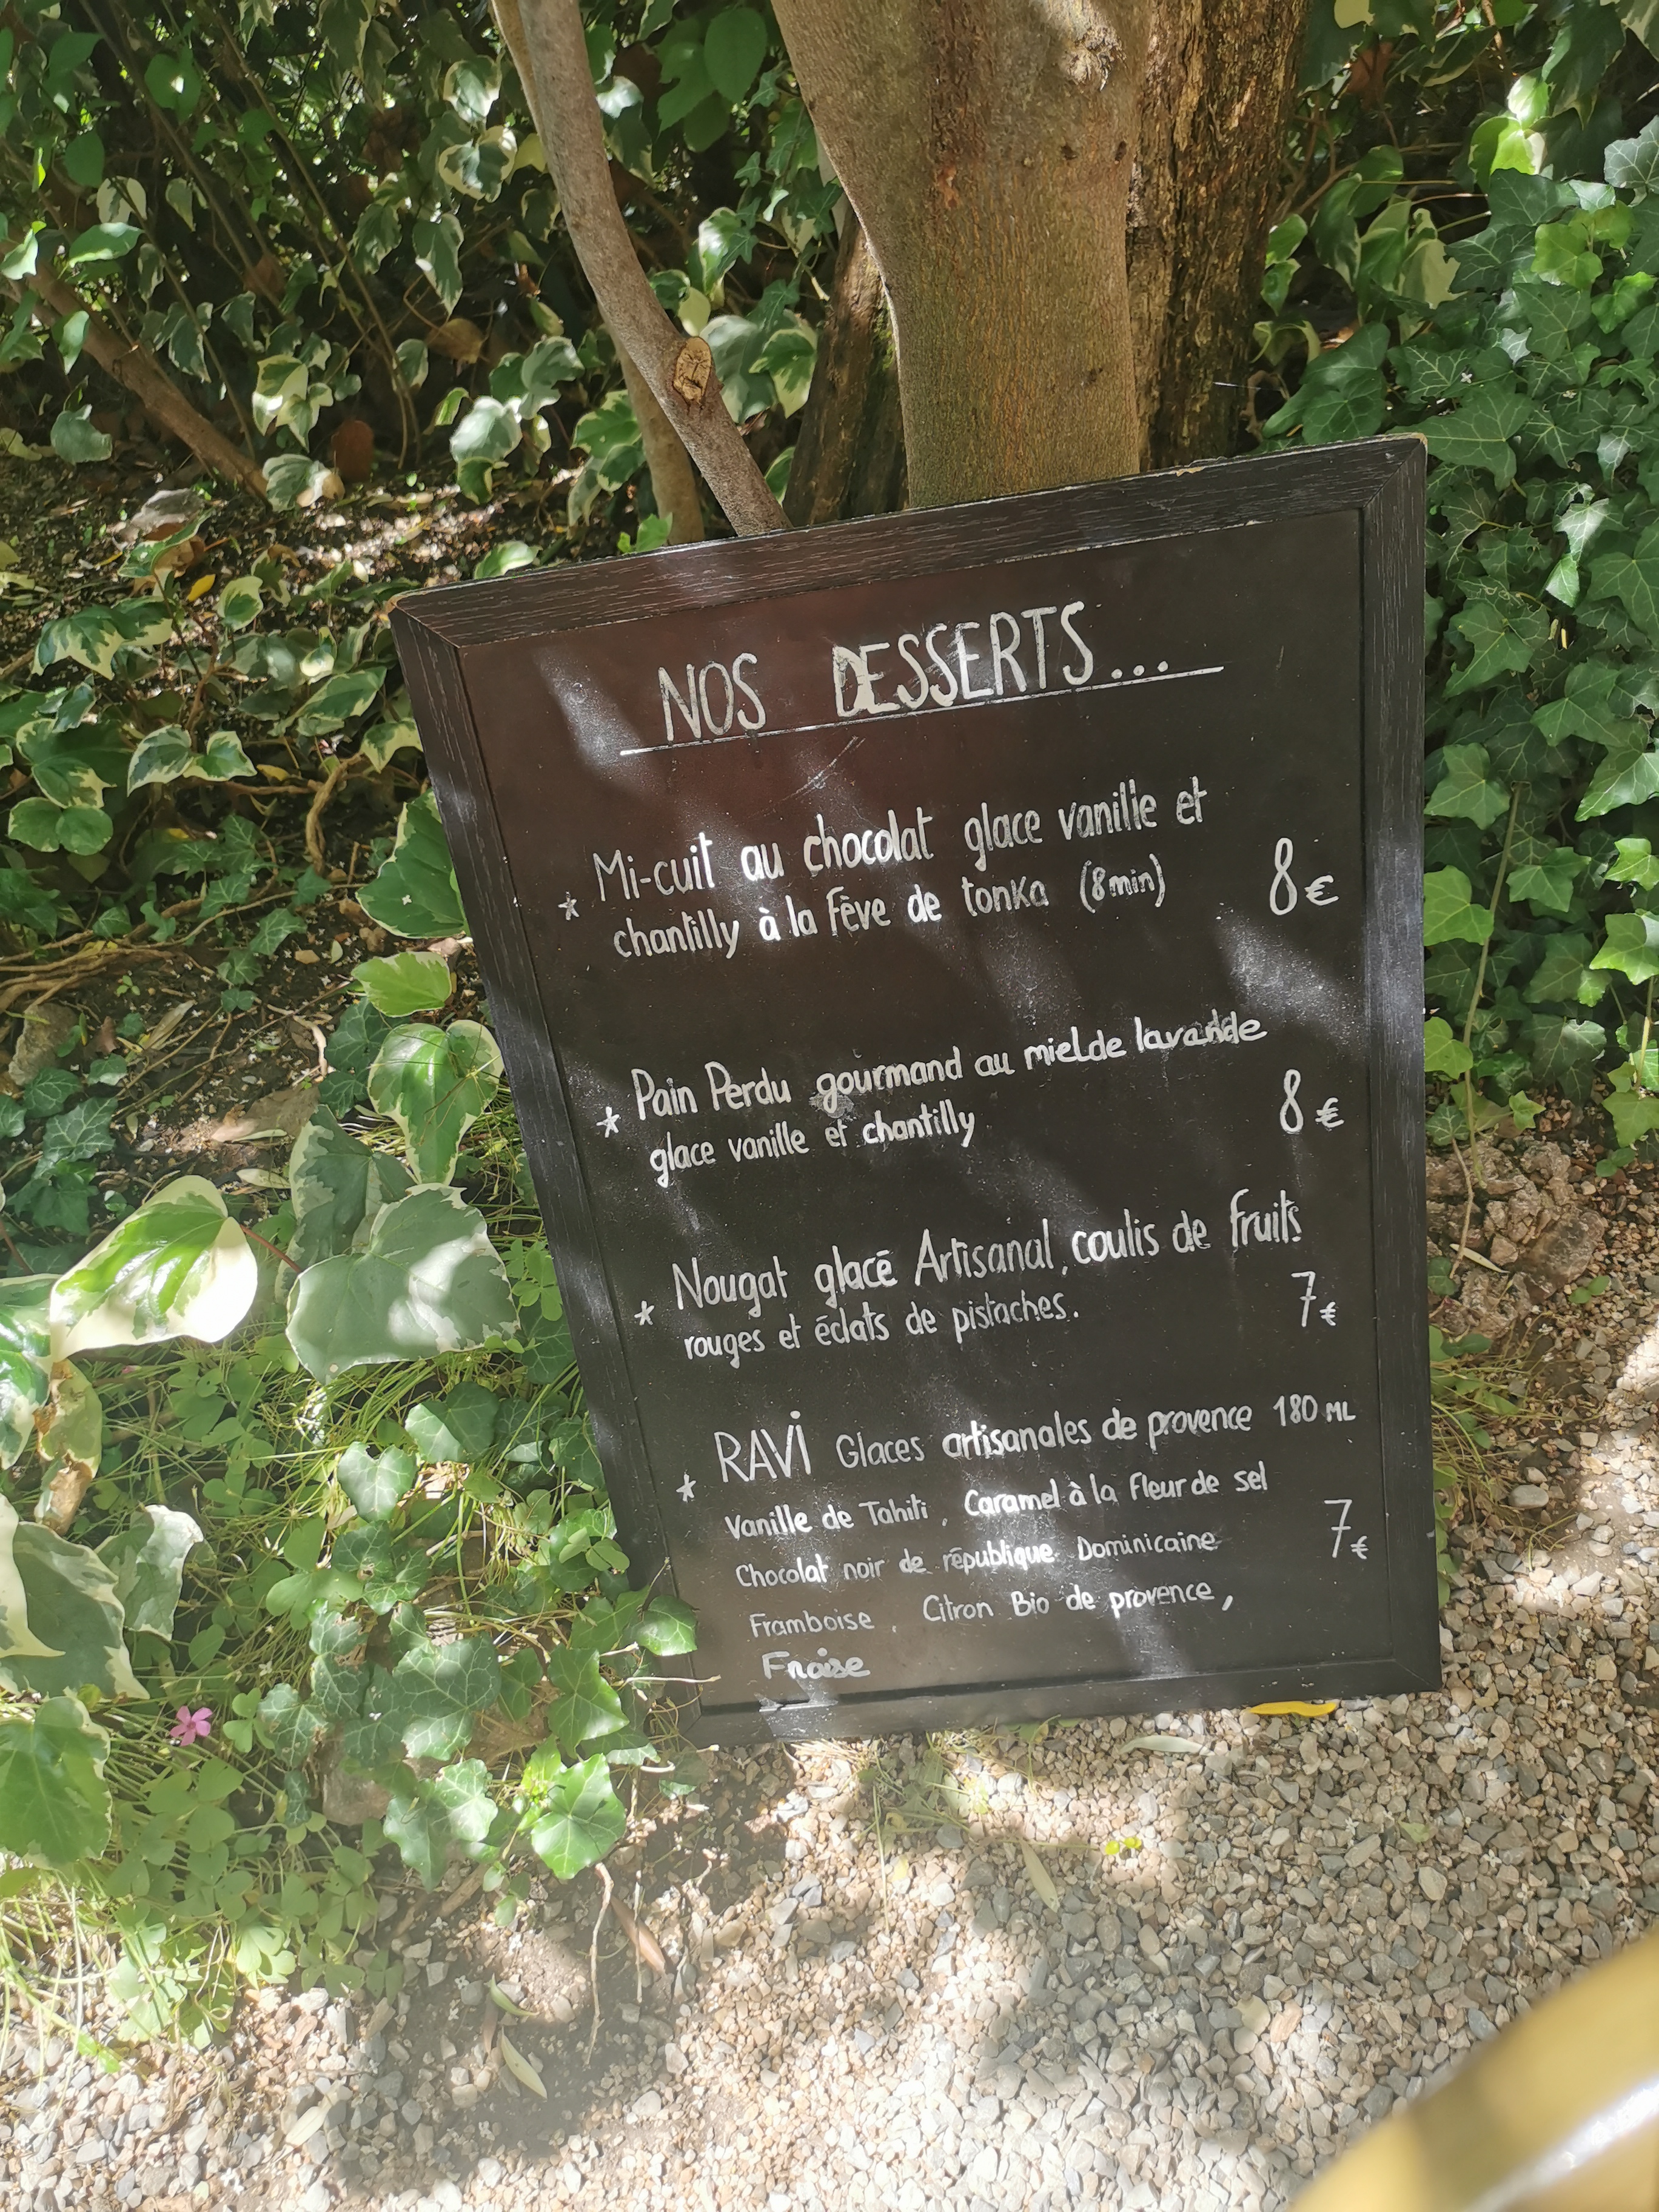 NOS DESSERTS...
* Mi-cuit au chocolat glace vanille et
chantilly à la fève de tonka (8min) 8€
* Pain Perdu gourmand au miel de lavande
glace vanille et chantilly 8€
* Nougat glacé Artisanal, coulis de fruits
rouges et éclats de pistaches. 7€
* RAVi Glaces artisanales de provence 180 ML
Vanille de Tahiti, Caramel à la fleur de sel
Chocolat noir de république Dominicaine 7€
Framboise, Citron Bio de provence,
Fraise